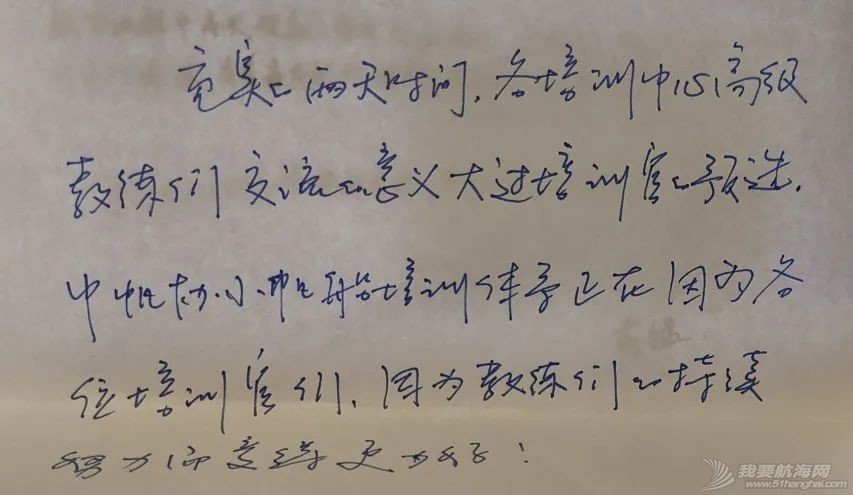 充实的两天时间，各培训中心高级
教练们交流的意义大过培训官的预选。
中帆协小帆船培训体系正在因为各
位培训官们、因为教练们的持续
努力而变得更加好！
我要航海网
www.51hanghai.com